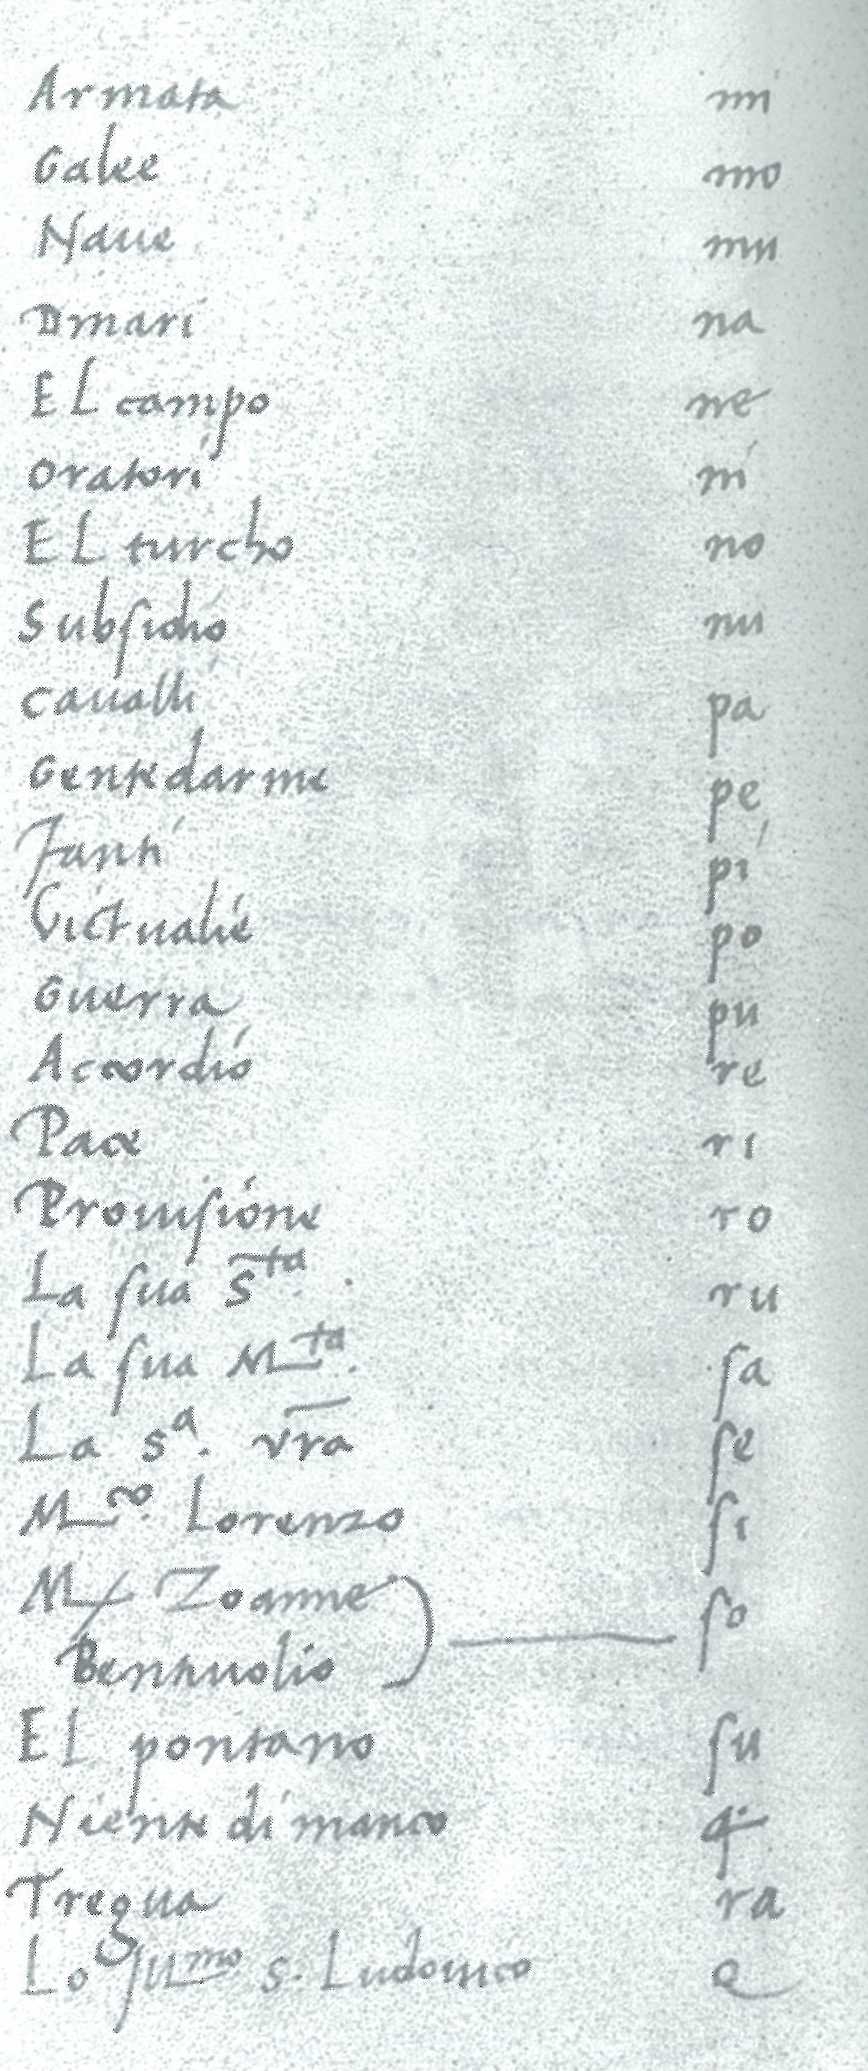 Armata mi
Galee mo
Naue mu
Dinari na
El campo ne
Oratori ni
El turcho no
Subsidio nu
Caualli pa
Gente darme pe
Fanti pi
Victualie po
Guerra pu
Accordio re
Pace ri
Prouisione ro
La sua S.ta ru
La sua M.ta sa
La s.a vra se
M.co Lorenzo si
M. Zoanne
Bentiuolio so
El pontano su
Niente di manco q
Tregua ra
Lo Ill.mo s. Ludouico